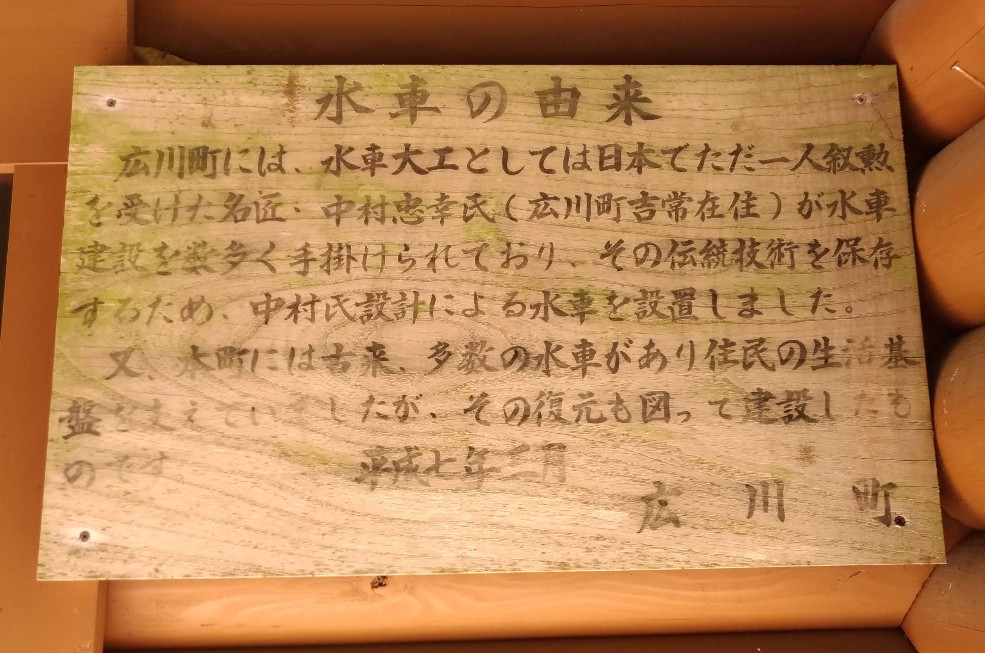 水車の由来
広川町には、水車大工としては日本でただ一人叙勲
を受けた名匠・中村忠幸氏(広川町吉常在住)が水車
建設を数多く手掛けられており、その伝統技術を保存
するため、中村氏設計による水車を設置しました。
又、本町には古来、多数の水車があり住民の生活基
盤を支えていましたが、その復元も図って建設したも
のです
平成七年二月
広川町